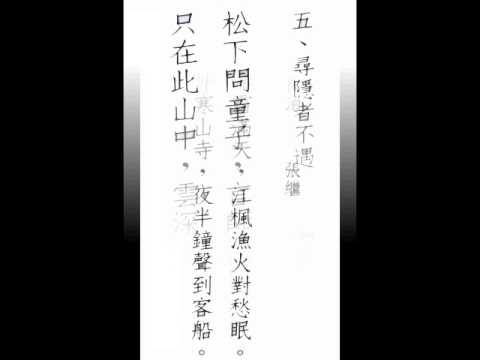 五、尋隱者不遇
張繼
松下問童子,
滿天,江楓漁火對愁眠。
只在此山中,雲深
外寒山寺,夜半鐘聲到客船。